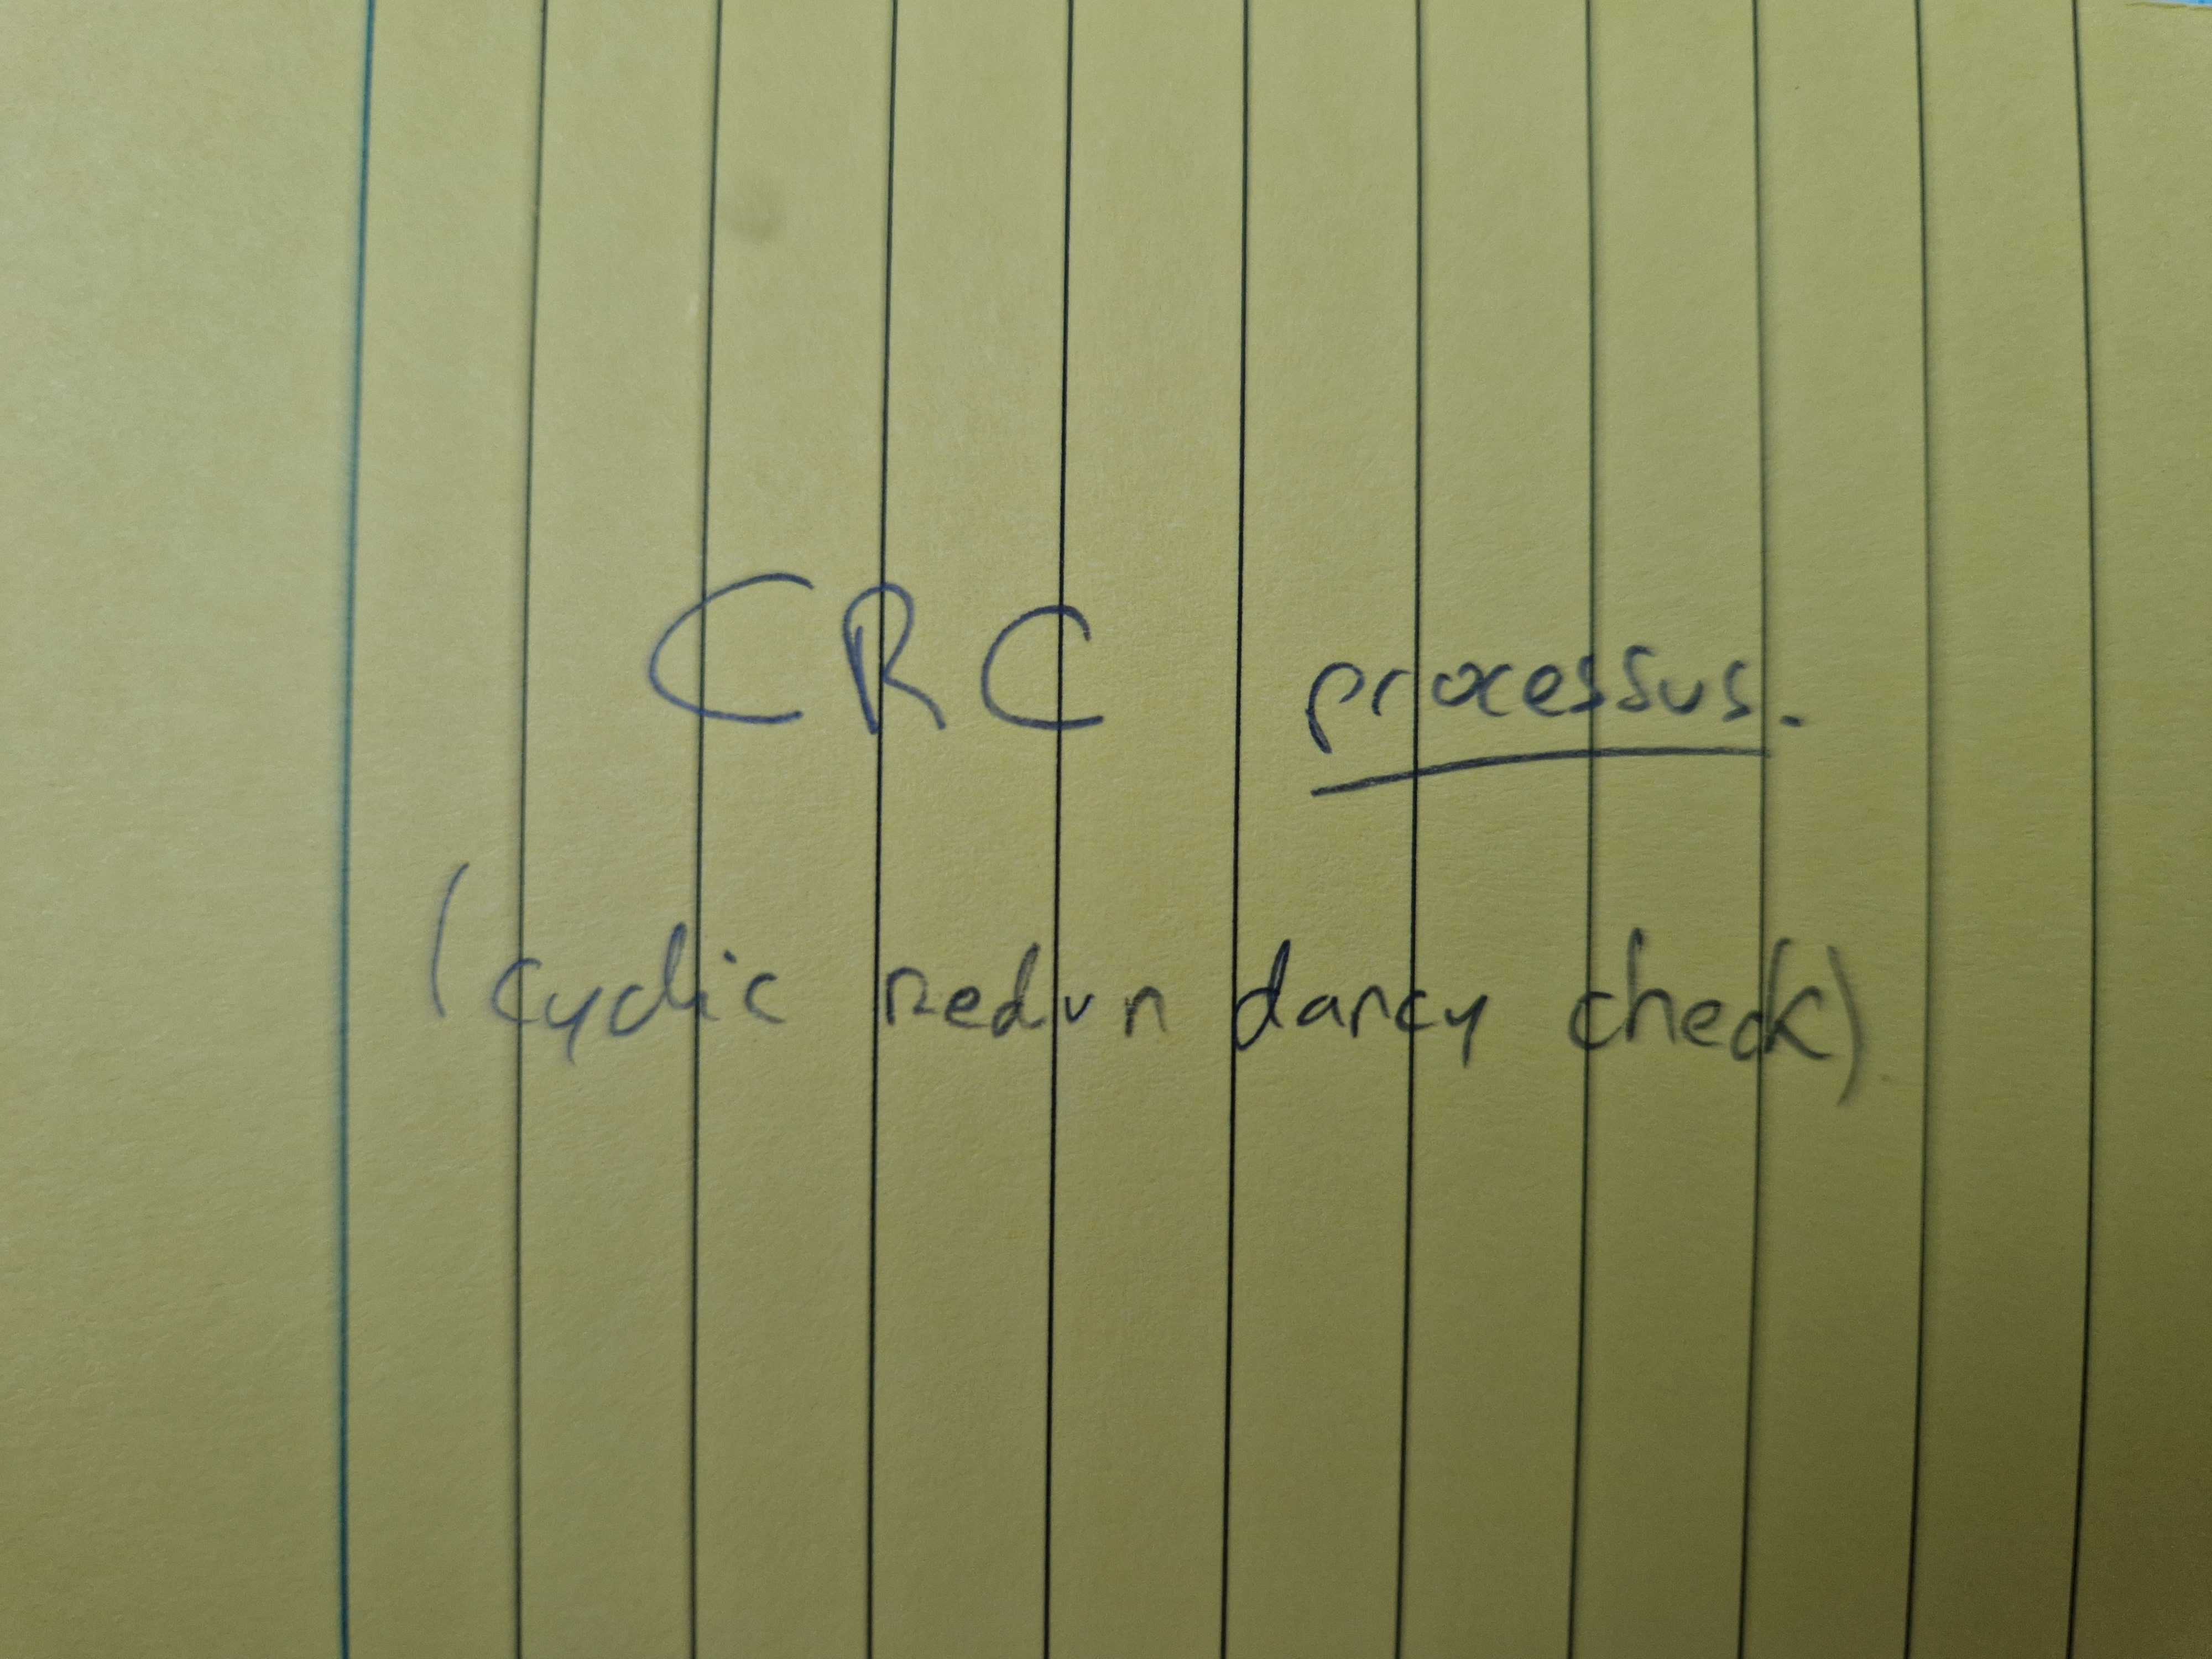 CRC processus.
(cyclic redundancy check)